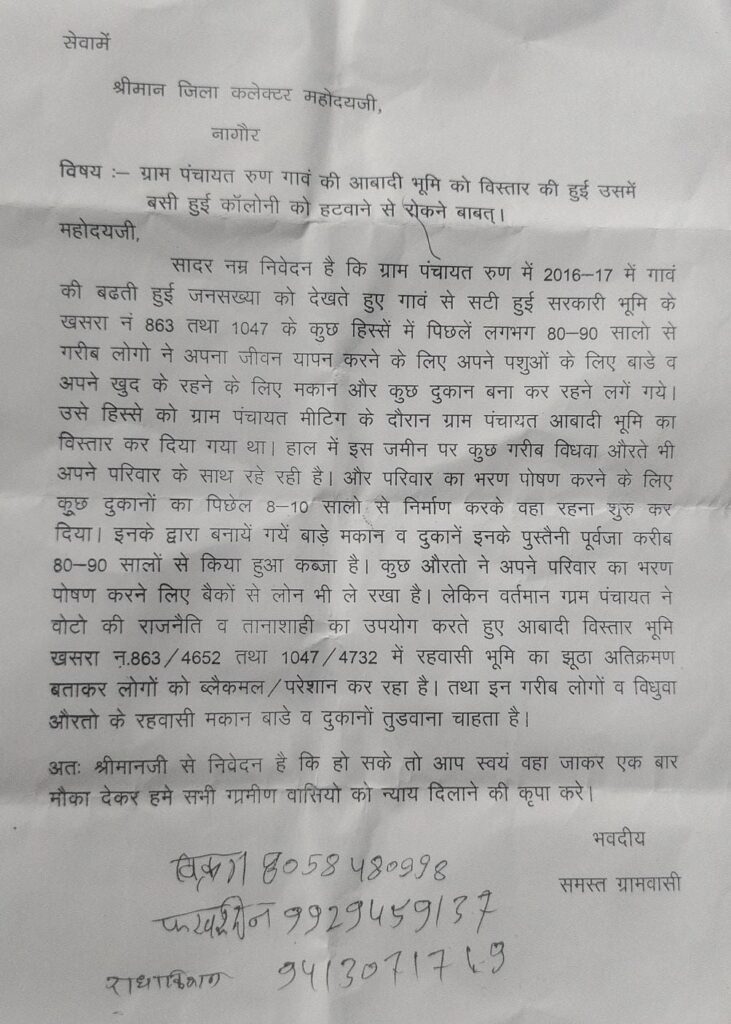 सेवामें
श्रीमान जिला कलेक्टर महोदयजी,
नागौर
विषय :– ग्राम पंचायत रुण गावं की आबादी भूमि को विस्तार की हुई उसमें
बसी हुई कॉलोनी को हटवाने से रोकने बाबत्।
महोदयजी,
सादर नम्र निवेदन है कि ग्राम पंचायत रुण में 2016–17 में गावं
की बढती हुई जनसख्या को देखते हुए गावं से सटी हुई सरकारी भूमि के
खसरा नं 863 तथा 1047 के कुछ हिस्सें में पिछलें लगभग 80–90 सालो से
गरीब लोगो ने अपना जीवन यापन करने के लिए अपने पशुओं के लिए बाडे व
अपने खुद के रहने के लिए मकान और कुछ दुकान बना कर रहने लगें गये।
उसे हिस्से को ग्राम पंचायत मीटिग के दौरान ग्राम पंचायत आबादी भूमि का
विस्तार कर दिया गया था। हाल में इस जमीन पर कुछ गरीब विधवा औरते भी
अपने परिवार के साथ रहे रही है। और परिवार का भरण पोषण करने के लिए
कुछ दुकानों का पिछेल 8–10 सालो से निर्माण करके वहा रहना शुरु कर
दिया। इनके द्वारा बनायें गयें बाड़े मकान व दुकानें इनके पुस्तैनी पूर्वजा करीब
80–90 सालों से किया हुआ कब्जा है। कुछ औरतो ने अपने परिवार का भरण
पोषण करने लिए बैकों से लोन भी ले रखा है। लेकिन वर्तमान ग्राम पंचायत ने
वोटो की राजनैति व तानाशाही का उपयोग करते हुए आबादी विस्तार भूमि
खसरा न.863/4652 तथा 1047/4732 में रहवासी भूमि का झूठा अतिक्रमण
बताकर लोगों को ब्लैकमल/परेशान कर रहा है। तथा इन गरीब लोगों व विधुवा
औरतो के रहवासी मकान बाडे व दुकानों तुडवाना चाहता है।
अतः श्रीमानजी से निवेदन है कि हो सके तो आप स्वयं वहा जाकर एक बार
मौका देकर हमे सभी ग्रामीण वासियो को न्याय दिलाने की कृपा करे।
भवदीय
समस्त ग्रामवासी
8058480998
9929459137